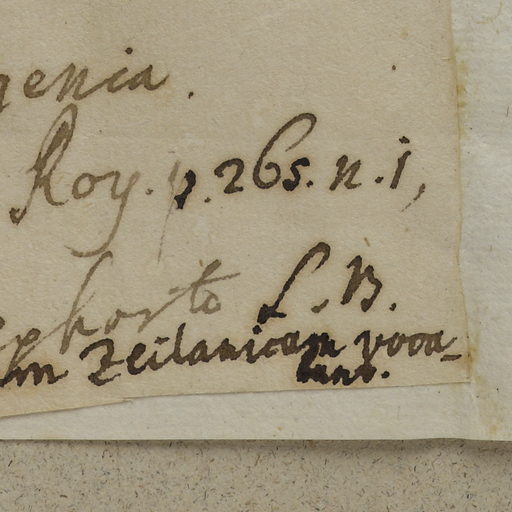 genia.
Roy. p. 265. n. 1,
ex horto L. B.
m Zeilanicam voca_
bunt.